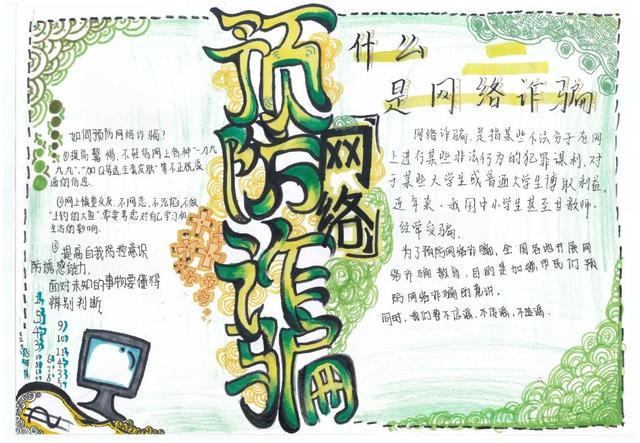 预防诈骗
网络
什么
是网络诈骗
如何预防网络诈骗?
①提高警惕,不轻信网上各种“一刀九
九九”,“加Q等送全套皮肤”等不正规渠
道的信息.
②网上慎重交友,不网恋,不沦陷不做
“上钓的大鱼”
生活的影响.
③提高自我防控意识
防诱惑能力.
面对未知的事物要懂得
辨别判断.
网络诈骗,是指某些不法分子在网
上进行某些非法行为的犯罪谋利,对
于某些大学生或普通大学生博取利益,
近年来,我国中小学生甚至甘教师,
经常受骗.
为了预防网络诈骗,全国各地开展网
络诈骗教育,目的是加强市民们预
防网络诈骗的意识.
同时,我们要不信谣,不传谣,不造谣.